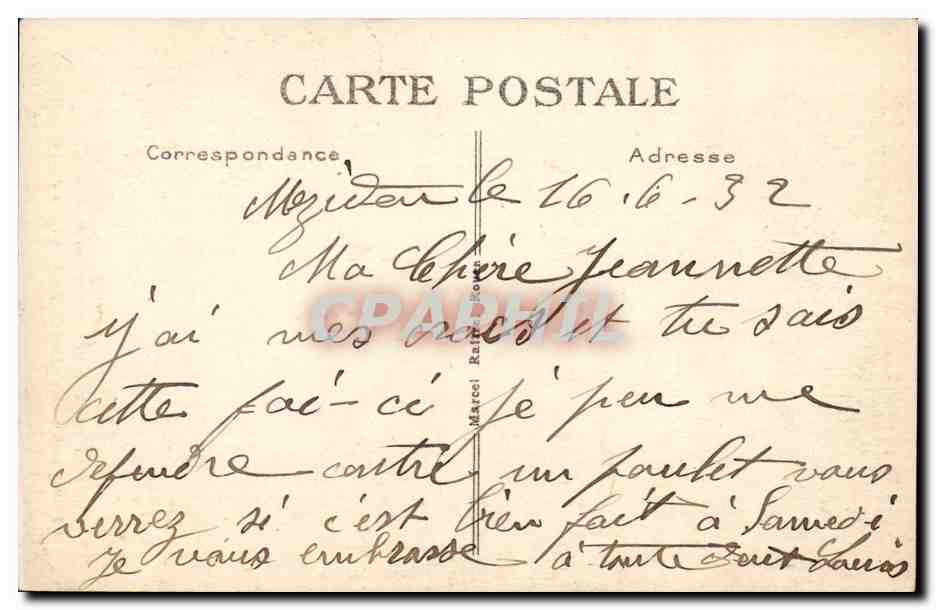 CARTE POSTALE
Correspondance Adresse
Mézidon le 16.6.32
Ma Chère Jeannette
j'ai mes crocs et tu sais
cette foi-ci je peu me
defendre contre un poulet vous
verrez si c'est bien fait à Samedi
Je vous embrasse à toute deux Louis
Marcel Rouen
CPAPHIL